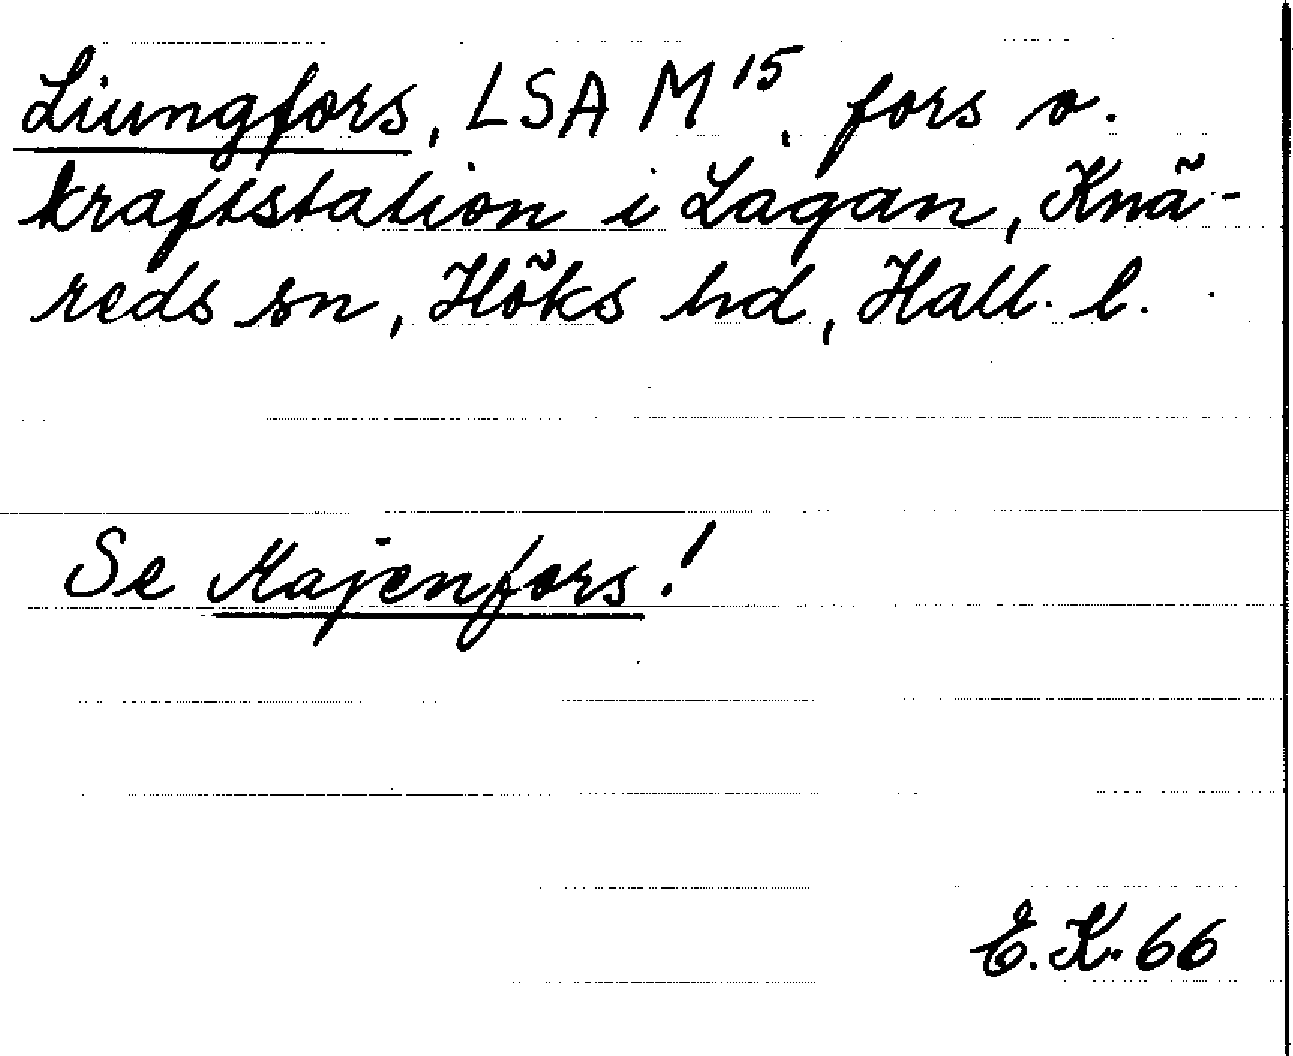 Liungfors, LSA M¹⁵, fors o.
kraftstation i Lagan, Knä-
reds sn, Höks hd, Hall. l.
Se Majenfors!
E. K. 66